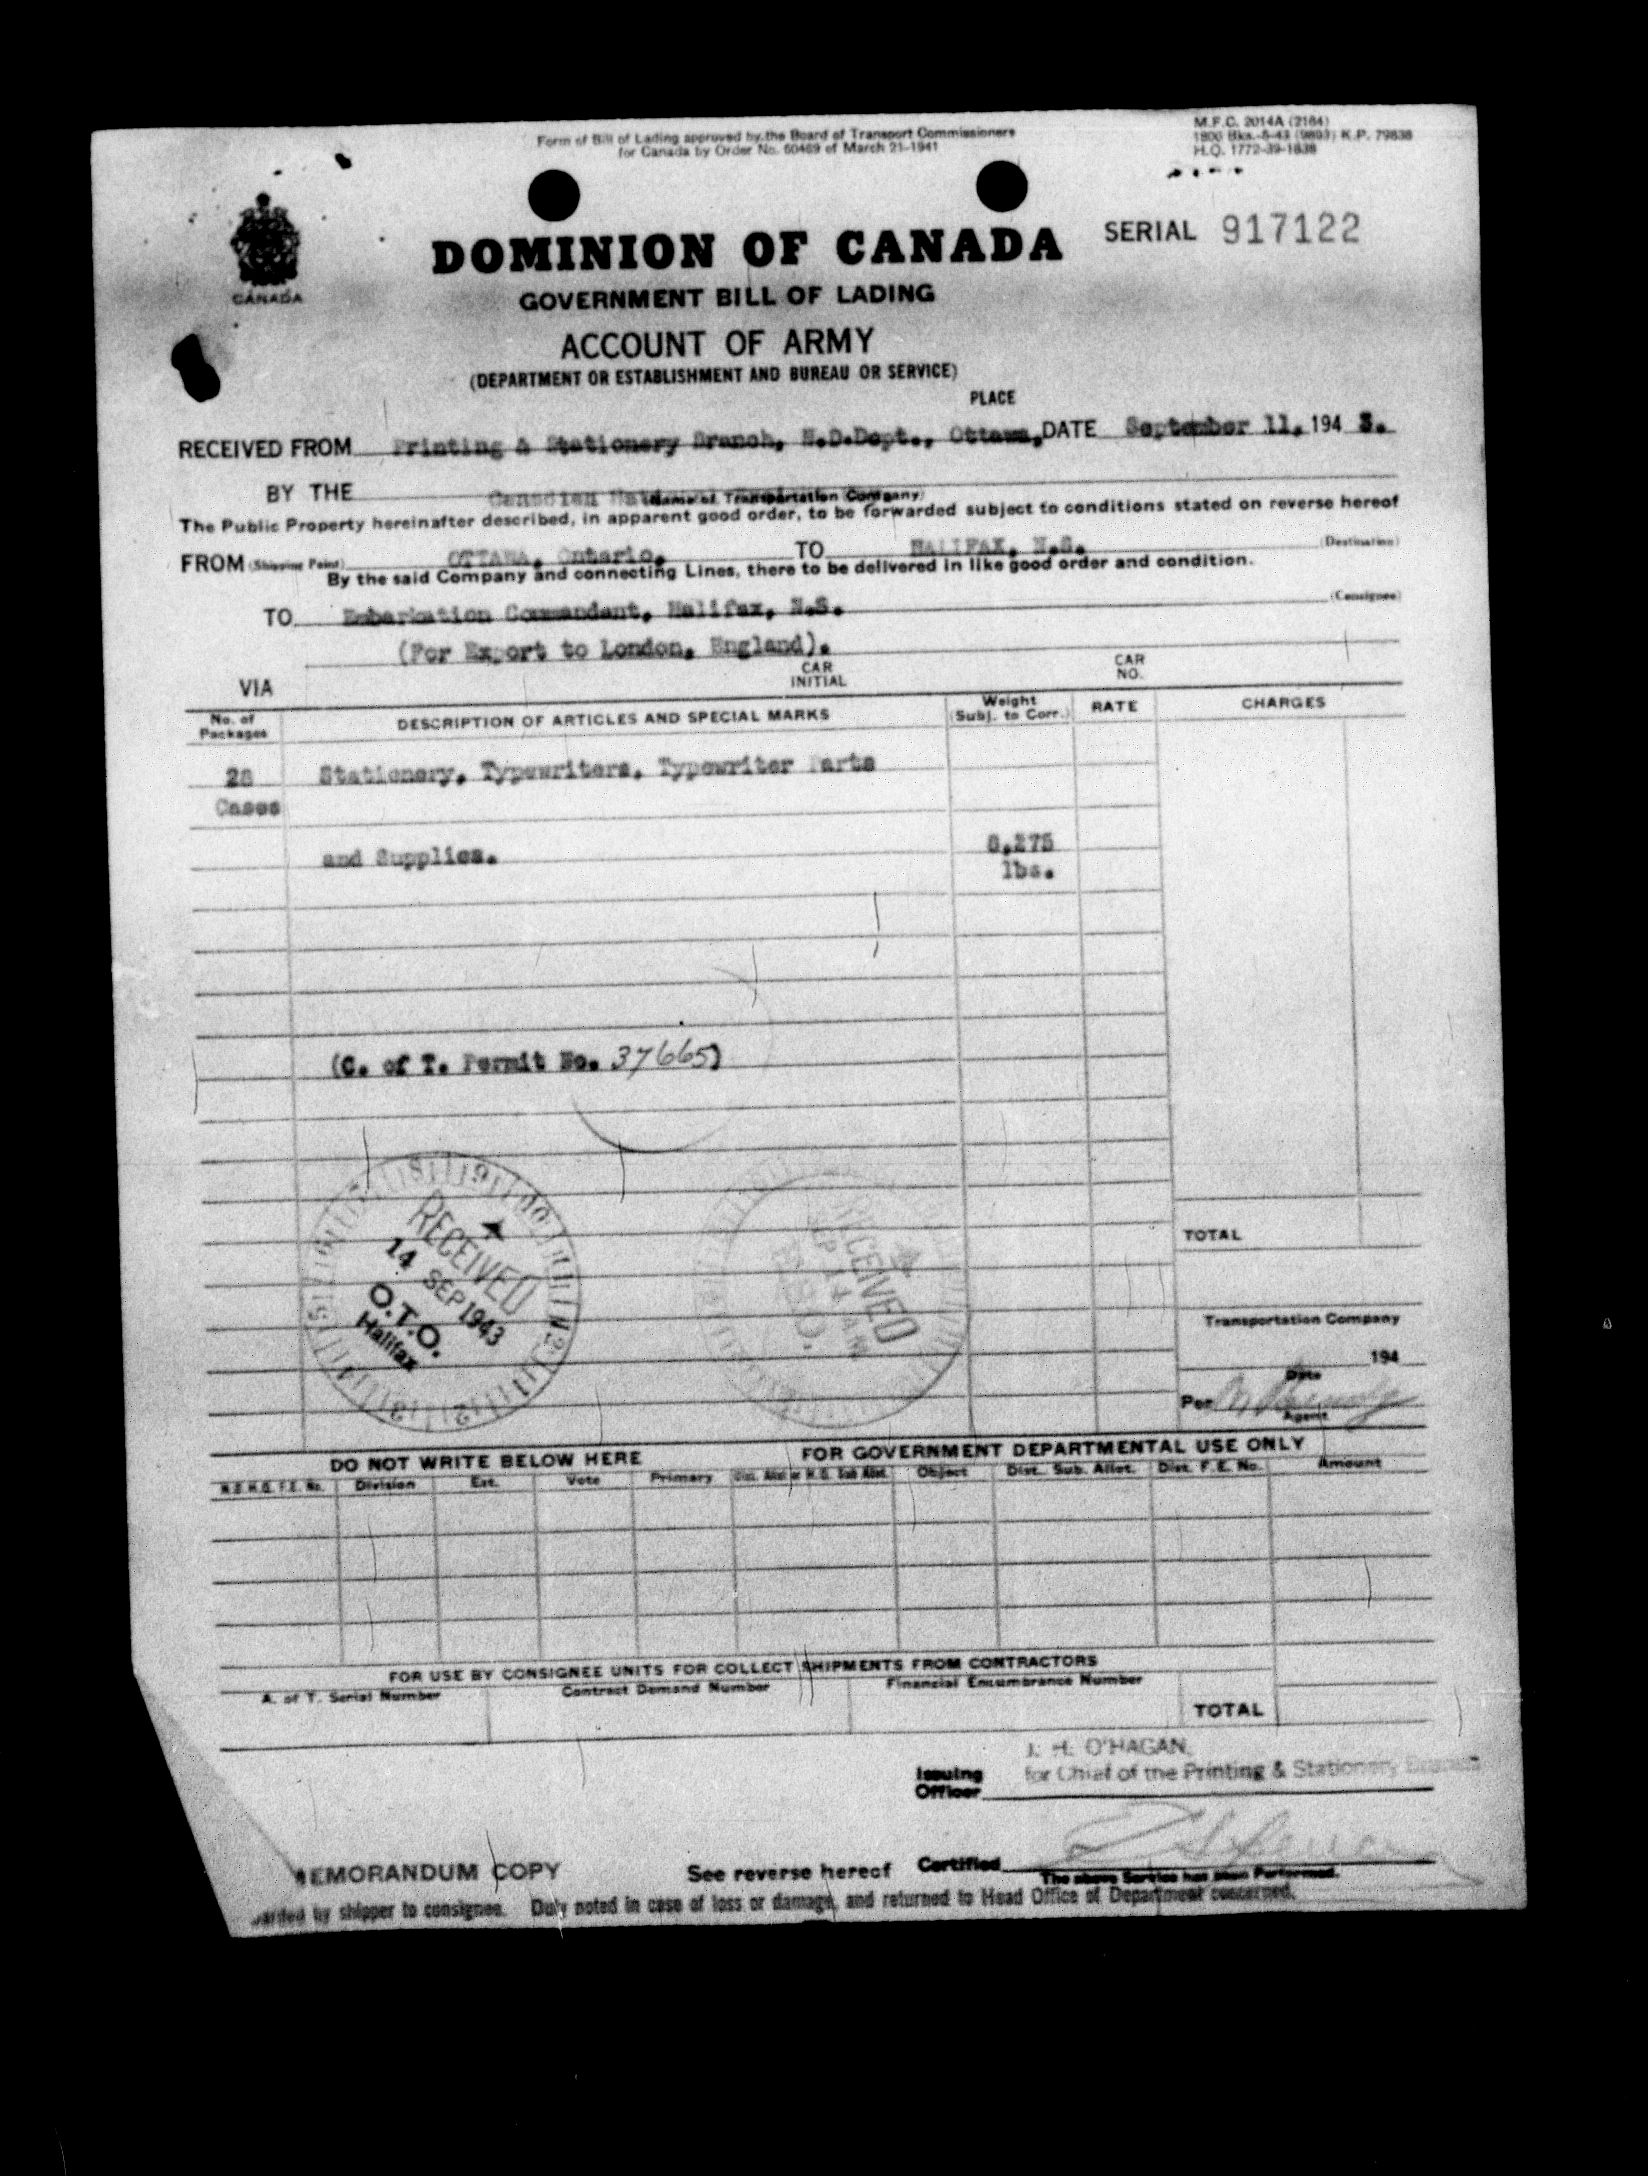 Form of Bill of Lading approved by the Board of Transport Commissioners
for Canada by Order No. 60469 of March 21-1941
M.F.C. 2014A (2164)
1800 Bks.-5-43 (9893) K.P. 79838
H.Q. 1772-39-1838
CANADA
SERIAL 917122
DOMINION OF CANADA
GOVERNMENT BILL OF LADING
ACCOUNT OF ARMY
(DEPARTMENT OR ESTABLISHMENT AND BUREAU OR SERVICE)
PLACE
RECEIVED FROM Printing & Stationery Branch, N.D.Dept., Ottawa, DATE September 11, 194 3.
BY THE Canadian National
(Name of Transportation Company)
The Public Property hereinafter described, in apparent good order, to be forwarded subject to conditions stated on reverse hereof
FROM (Shipping Point) OTTAWA, Ontario. TO HALIFAX, N.S. (Destination)
By the said Company and connecting Lines, there to be delivered in like good order and condition.
TO Embarkation Commandant, Halifax, N.S. (Consignee)
(For Export to London, England).
VIA CAR INITIAL CAR NO.
No. of Packages DESCRIPTION OF ARTICLES AND SPECIAL MARKS Weight (Subj. to Corr.) RATE CHARGES
28 Stationery, Typewriters, Typewriter Parts
Cases
and Supplies. 8,275
lbs.
(C. of T. Permit No. 37665)
RECEIVED
14 SEP 1943
O.T.O.
Halifax
RECEIVED
SEP 14
TOTAL
Transportation Company
194
Date
Per
Agent
DO NOT WRITE BELOW HERE FOR GOVERNMENT DEPARTMENTAL USE ONLY
N.D.H.Q. F.E. No. Division Est. Vote Primary Dist. Allot or H.Q. Sub Allot. Object Dist. Sub. Allot. Dist. F.E. No. Amount
FOR USE BY CONSIGNEE UNITS FOR COLLECT SHIPMENTS FROM CONTRACTORS
A. of T. Serial Number Contract Demand Number Financial Encumbrance Number
TOTAL
J. H. O'HAGAN,
Issuing Officer for Chief of the Printing & Stationery Branch
MEMORANDUM COPY See reverse hereof Certified
The above Service has been Performed.
by shipper to consignee. Duly noted in case of loss or damage, and returned to Head Office of Department concerned.